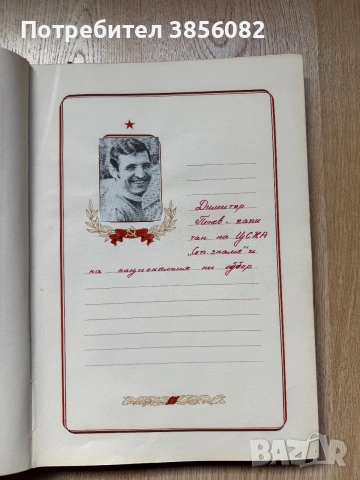 Потребител 3856082
Димитър
Пенев - капи
тан на ЦСКА
„Сеп. знаме" и
на националния ни отбор
BAZAR